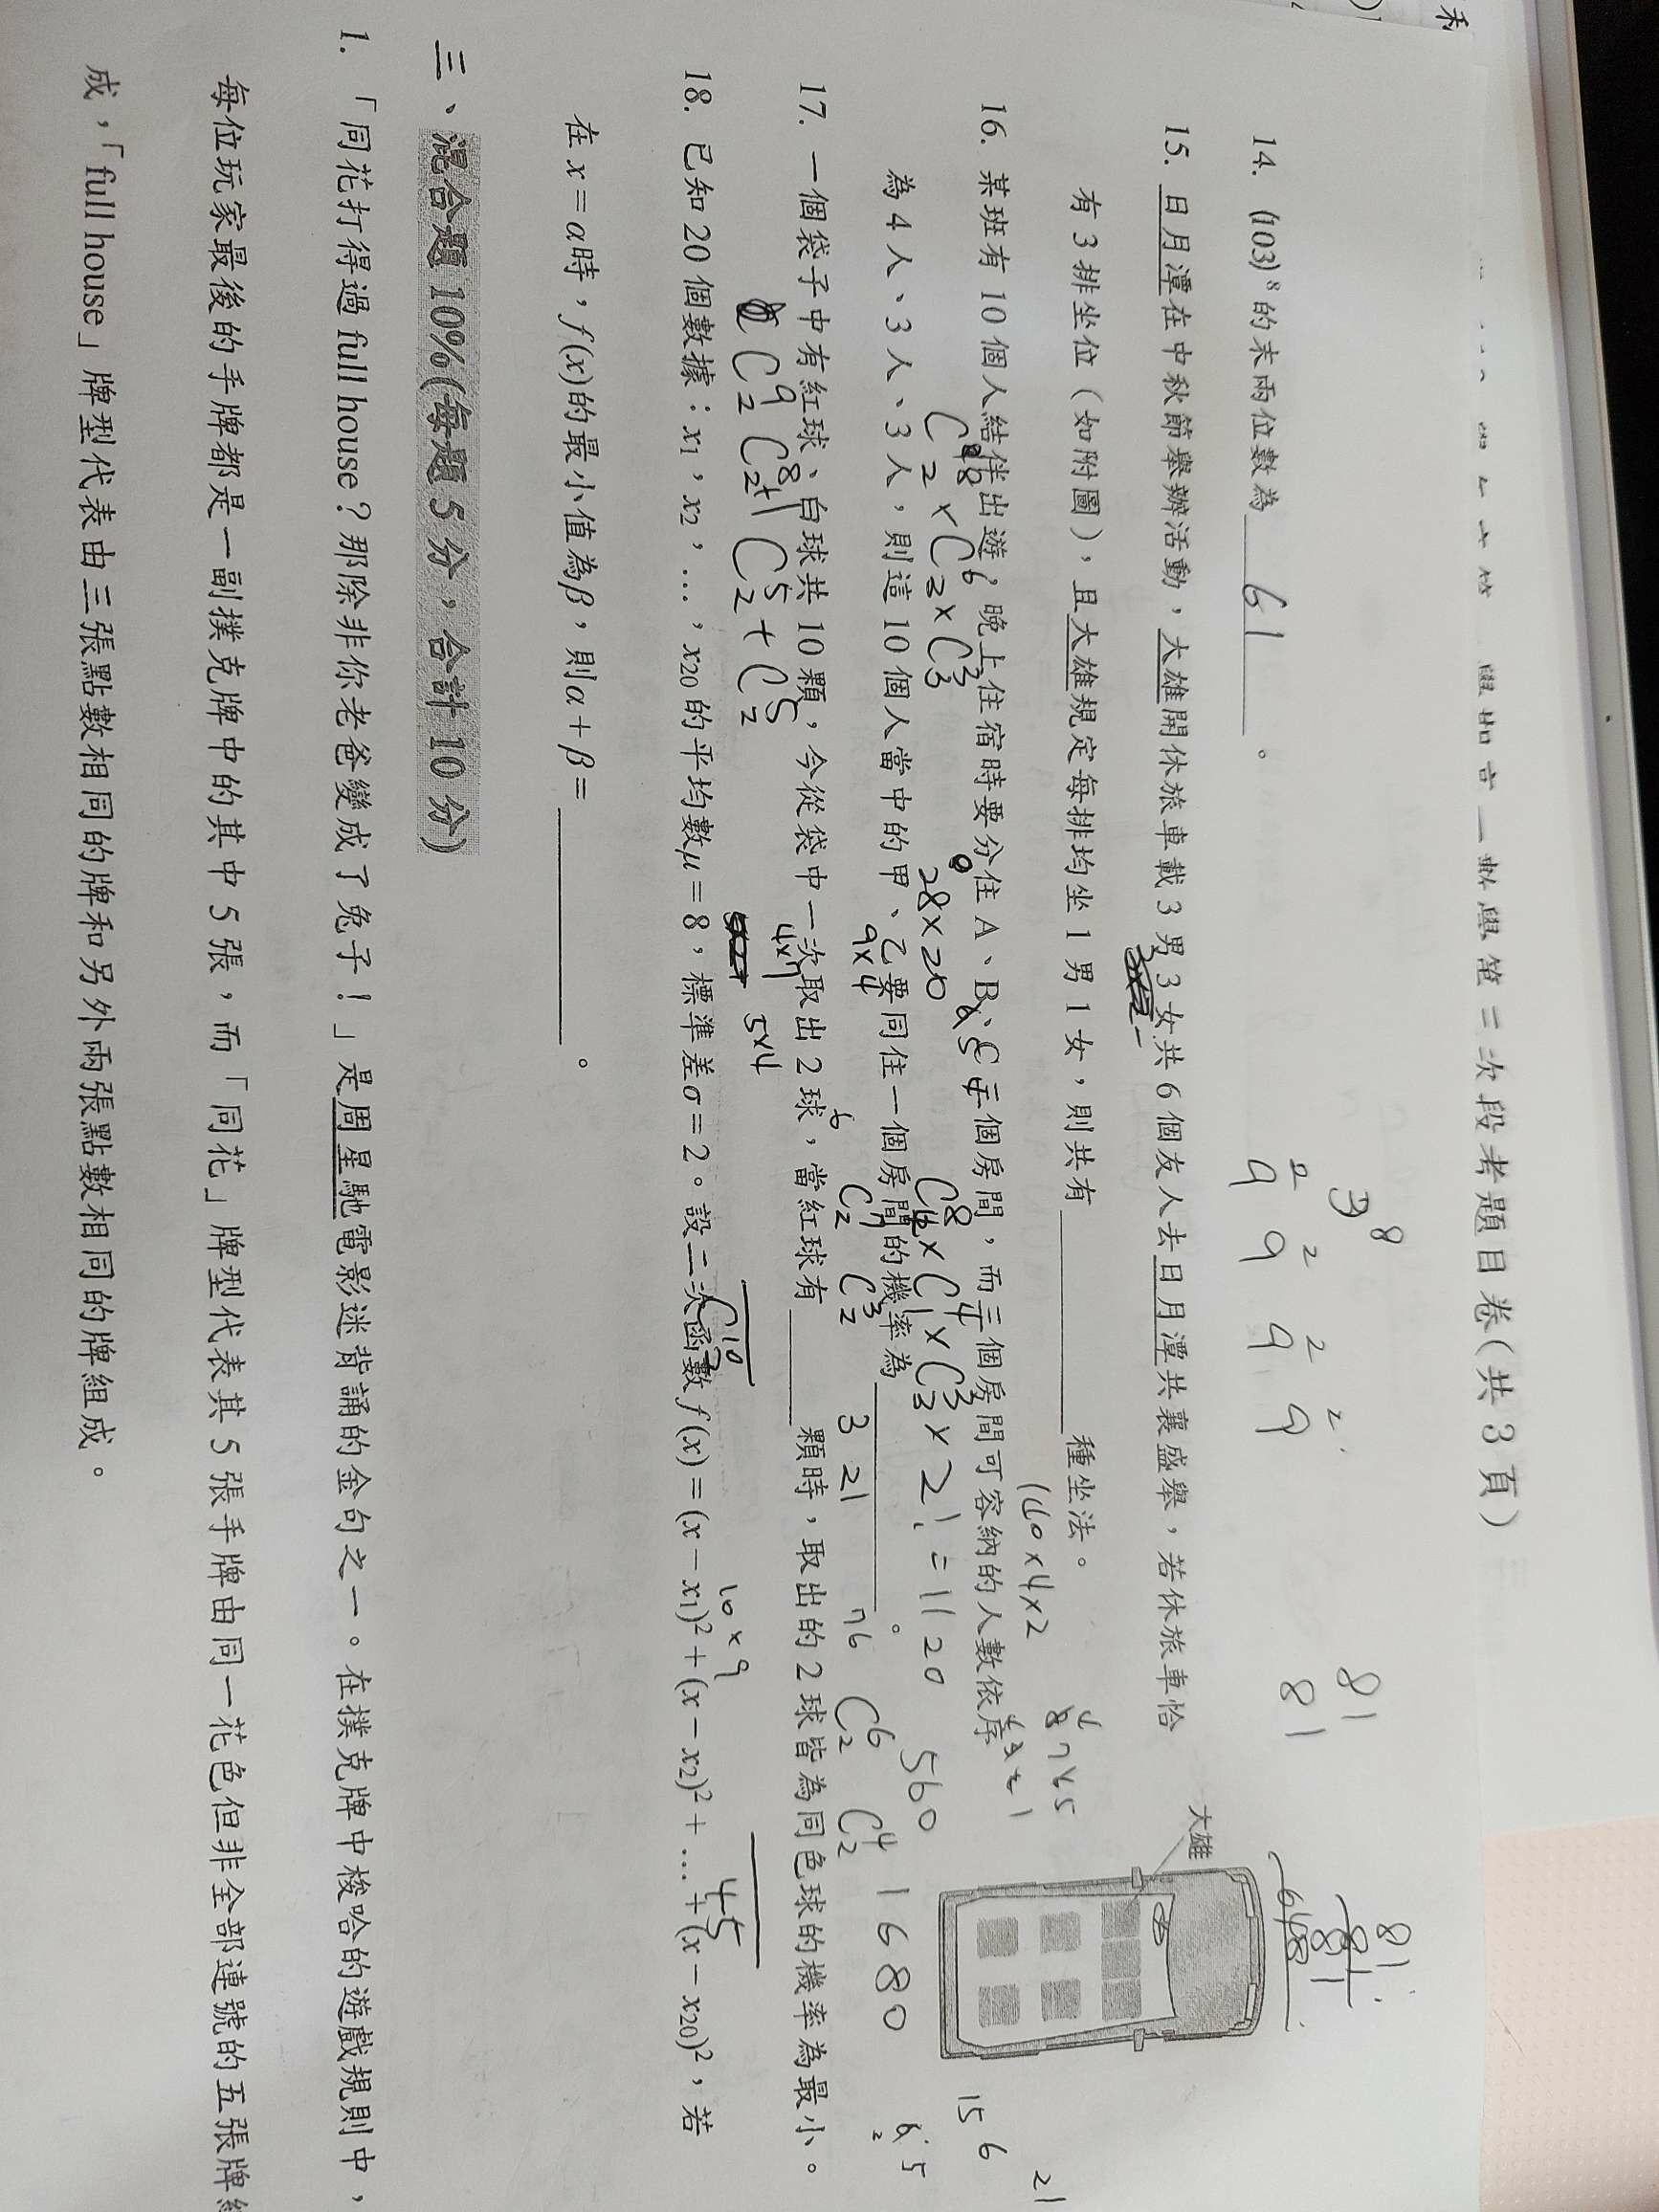 數學第三次段考題目卷(共3頁)
14. (103)⁸的末兩位數為 61 。
3⁸
9² 9² 9² 9²
81
81
15. 日月潭在中秋節舉辦活動,大雄開休旅車載3男3女共6個友人去日月潭共襄盛舉,若休旅車恰
有3排坐位(如附圖),且大雄規定每排均坐1男1女,則共有 種坐法。
大雄
16. 某班有10個人結伴出遊,晚上住宿時要分住A、B、C三個房間,而三個房間可容納的人數依序
為4人、3人、3人,則這10個人當中的甲、乙要同住一個房間的機率為 。
28×20
×2! = 1120
560
1680
9×4
17. 一個袋子中有紅球、白球共10顆,今從袋中一次取出2球,當紅球有 顆時,取出的2球皆為同色球的機率為最小。
4×7
5×4
3 21
10×9
45
18. 已知20個數據:x₁,x₂,…,x₂₀的平均數μ=8,標準差σ=2。設二次函數f(x)=(x−x₁)²+(x−x₂)²+…+(x−x₂₀)²,若
在x=α時,f(x)的最小值為β,則α+β= 。
三、混合題10%(每題5分,合計10分)
1. 「同花打得過full house?那除非你老爸變成了兔子!」是周星馳電影迷背誦的金句之一。在撲克牌中梭哈的遊戲規則中,
每位玩家最後的手牌都是一副撲克牌中的其中5張,而「同花」牌型代表其5張手牌由同一花色但非全部連號的五張牌組
成,「full house」牌型代表由三張點數相同的牌和另外兩張點數相同的牌組成。